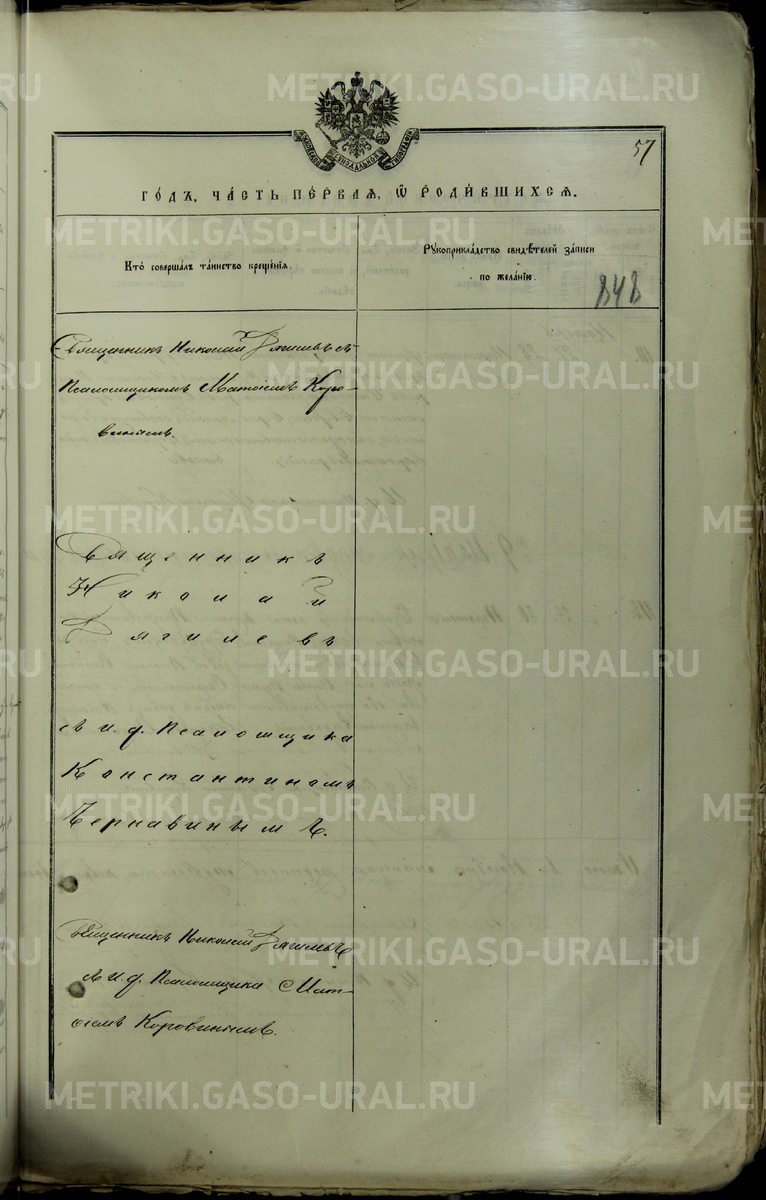 METRIKI.GASO-URAL.RU
57
СУНОДАЛЬНОЙ
ГО́ДЪ, ЧА́СТЬ ПЕ́РВАЯ, Ѡ РОДИ́ВШИХСЯ.
Кто̀ соверша́лъ та́инство креще́нїѧ.
Рꙋкоприкла́дство свидѣ́телей за́писи
по жела́нїю.
848
Священникъ Николай Дягилевъ съ
Псаломщикомъ Матоіемъ Коро-
винымъ.
Священникъ
Николай
Дягилевъ
съ и. д. Псаломщика
Константиномъ
Чернавинымъ.
Священникъ Николай Дягилевъ
съ И. д. Псаломщика Мат-
оіемъ Коровинымъ.